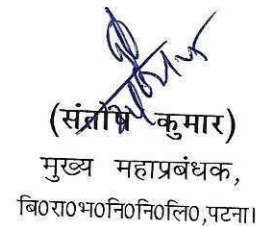 (संतोष कुमार)
मुख्य महाप्रबंधक,
बि0रा0भ0नि0नि0लि0,पटना।